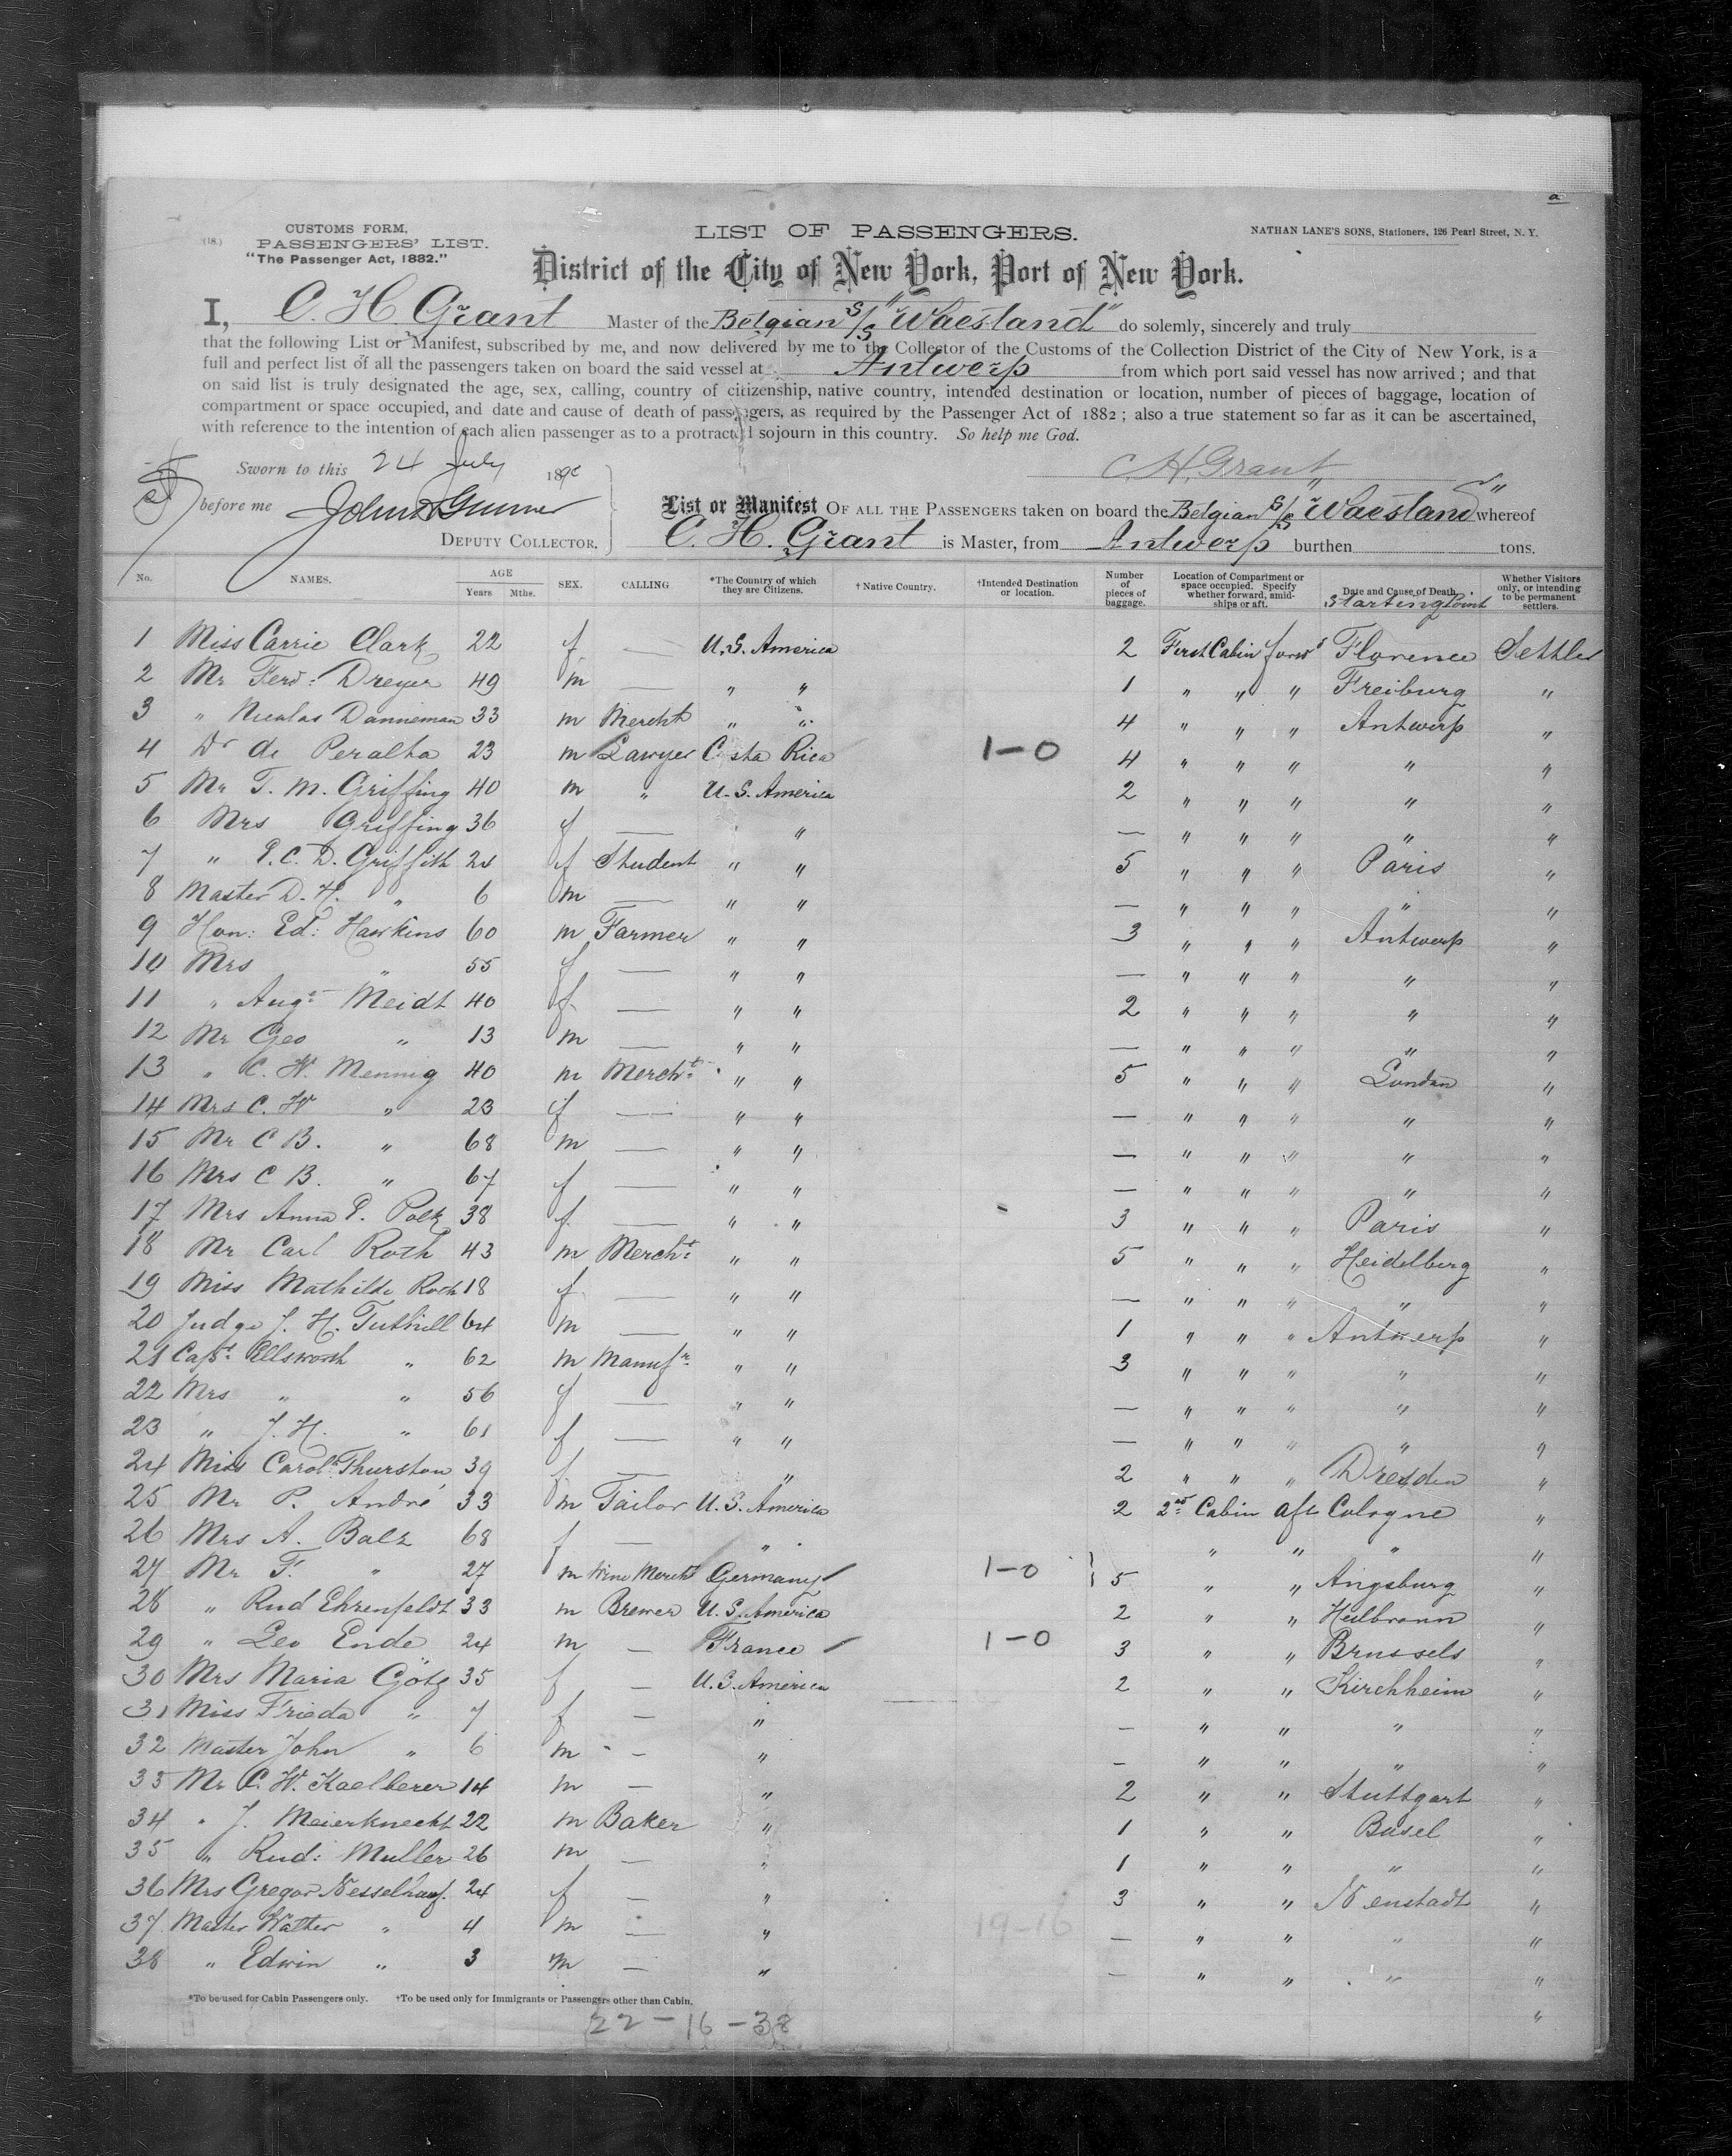 a
(18.)
CUSTOMS FORM,
PASSENGERS' LIST.
"The Passenger Act, 1882."
LIST OF PASSENGERS.
NATHAN LANE'S SONS, Stationers, 126 Pearl Street, N. Y.
District of the City of New York, Port of New York.
I, C. H. Grant Master of the Belgian S/S "Waesland" do solemly, sincerely and truly
that the following List or Manifest, subscribed by me, and now delivered by me to the Collector of the Customs of the Collection District of the City of New York, is a
full and perfect list of all the passengers taken on board the said vessel at Antwerp from which port said vessel has now arrived ; and that
on said list is truly designated the age, sex, calling, country of citizenship, native country, intended destination or location, number of pieces of baggage, location of
compartment or space occupied, and date and cause of death of passengers, as required by the Passenger Act of 1882 ; also a true statement so far as it can be ascertained,
with reference to the intention of each alien passenger as to a protracted sojourn in this country. So help me God.
Sworn to this 24 July 189
C. H. Grant
before me
DEPUTY COLLECTOR.
List or Manifest OF ALL THE PASSENGERS taken on board the Belgian S/S "Waesland" whereof
C. H. Grant is Master, from Antwerp burthen tons.
No. NAMES. AGE Years Mths. SEX. CALLING *The Country of which they are Citizens. †Native Country. †Intended Destination or location. Number of pieces of baggage. Location of Compartment or space occupied. Specify whether forward, amidships or aft. Date and Cause of Death. Starting Point Whether Visitors only, or intending to be permanent settlers.
1 Miss Carrie Clark 22 f — U.S. America 2 First Cabin forwd Florence Settler
2 Mr Ferd: Dreyer 49 m — " " 1 " " " Freiburg "
3 " Nicolas Danneman 33 m Mercht " " 4 " " " Antwerp "
4 Dr de Peralta 23 m Lawyer Costa Rica 1-0 4 " " " " "
5 Mr T. M. Griffing 40 m " U.S. America 2 " " " " "
6 Mrs Griffing 36 f — " — " " " " "
7 " P. C. D. Griffith 24 f Student " " 5 " " " Paris "
8 Master D. H. " 6 m — " " — " " " " "
9 Hon: Ed: Hawkins 60 m Farmer " " 3 " " " Antwerp "
10 Mrs " 55 f — " " — " " " " "
11 " Augt Meidt 40 f — " " 2 " " " " "
12 Mr Geo " 13 m — " " — " " " " "
13 " C. W. Mennig 40 m Mercht " " 5 " " " London "
14 Mrs C. W " 23 f — " " — " " " " "
15 Mr C B. " 68 m — " " — " " " " "
16 Mrs C B. " 67 f — " " — " " " " "
17 Mrs Anna P. Polk 38 f — " " 3 " " " Paris "
18 Mr Carl Roth 43 m Mercht " " 5 " " " Heidelberg "
19 Miss Mathilde Roth 18 f — " " — " " " " "
20 Judge J. H. Tuthill 64 m — " " 1 " " " Antwerp "
21 Capt. Ellsworth " 62 m Manufr " " 3 " " " " "
22 Mrs " " 56 f — " " — " " " " "
23 " J. H. " 61 f — " " — " " " " "
24 Miss Carol. Thurston 39 f — " 2 " " " Dresden "
25 Mr P. André 33 m Tailor U.S. America 2 2nd Cabin aft Cologne "
26 Mrs A. Balz 68 f — " " " " "
27 Mr F. " 27 m Wine Mercht Germany 1-0 5 " " Augsburg "
28 " Rud Ehrenfeldt 33 m Brewer U.S. America 2 " " Heilbronn "
29 " Leo Ende 24 m — France 1-0 3 " " Brussels "
30 Mrs Maria Götz 35 f — U.S. America 2 " " Kirchheim "
31 Miss Frieda " 7 f — " — " " " "
32 Master John " 6 m — " — " " " "
33 Mr C. W. Kaelberer 14 m — " 2 " " Stuttgart "
34 " J. Meierknecht 22 m Baker " 1 " " Basel "
35 " Rud: Muller 26 m — " 1 " " " "
36 Mrs Gregor Nesselhauf. 24 f — " 3 " " Neustadt "
37 Master Walter " 4 m — " 19-16 — " " " "
38 " Edwin " 3 m — " — " " " "
"
*To be used for Cabin Passengers only. †To be used only for Immigrants or Passengers other than Cabin.
22-16-38